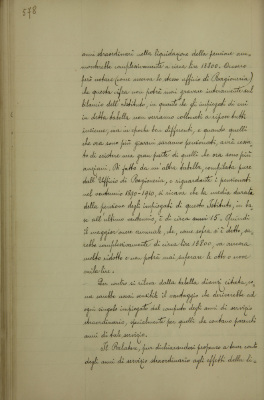 578
anni straordinari nella liquidazione della pensione am-
monterebbe complessivamente a circa lire 18800. Occorre
però notare (come osserva lo stesso ufficio di Ragioneria)
che questa cifra non potrà mai gravare interamente sul
bilancio dell'Istituto, in quanto che gli impiegati di cui
in detta tabella non verranno collocati a riposo tutti
insieme, ma in epoche ben differenti, e quando quelli
che ora sono più giovani saranno pensionati, avrà cessa-
to di esistere una gran parte di quelli che ora sono più
anziani. Di fatto da un'altra tabella, compilata pure
dall'Ufficio di Ragioneria, e riguardante i pensionati
nel ventennio 1890-1910, si ricava che la media durata
della pensione degli impiegati di questo Istituto, in ba-
se all'ultimo ventennio, è di circa anni 15. Quindi
il maggior onere annuale, che, come sopra si è detto, sa-
rebbe complessivamente di circa lire 18800, va ancora
molto ridotto e non potrà mai superare le otto o nove
mila lire.
Per contro si rileva dalla tabella dianzi citata, co-
me sarebbe assai sensibile il vantaggio che deriverebbe ad
ogni singolo impiegato dal computo degli anni di servizio
straordinario, specialmente per quelli che contano parecchi
anni di tale servizio.
Il Relatore, pur dichiarandosi propenso a tener conto
degli anni di servizio straordinario agli effetti della li-